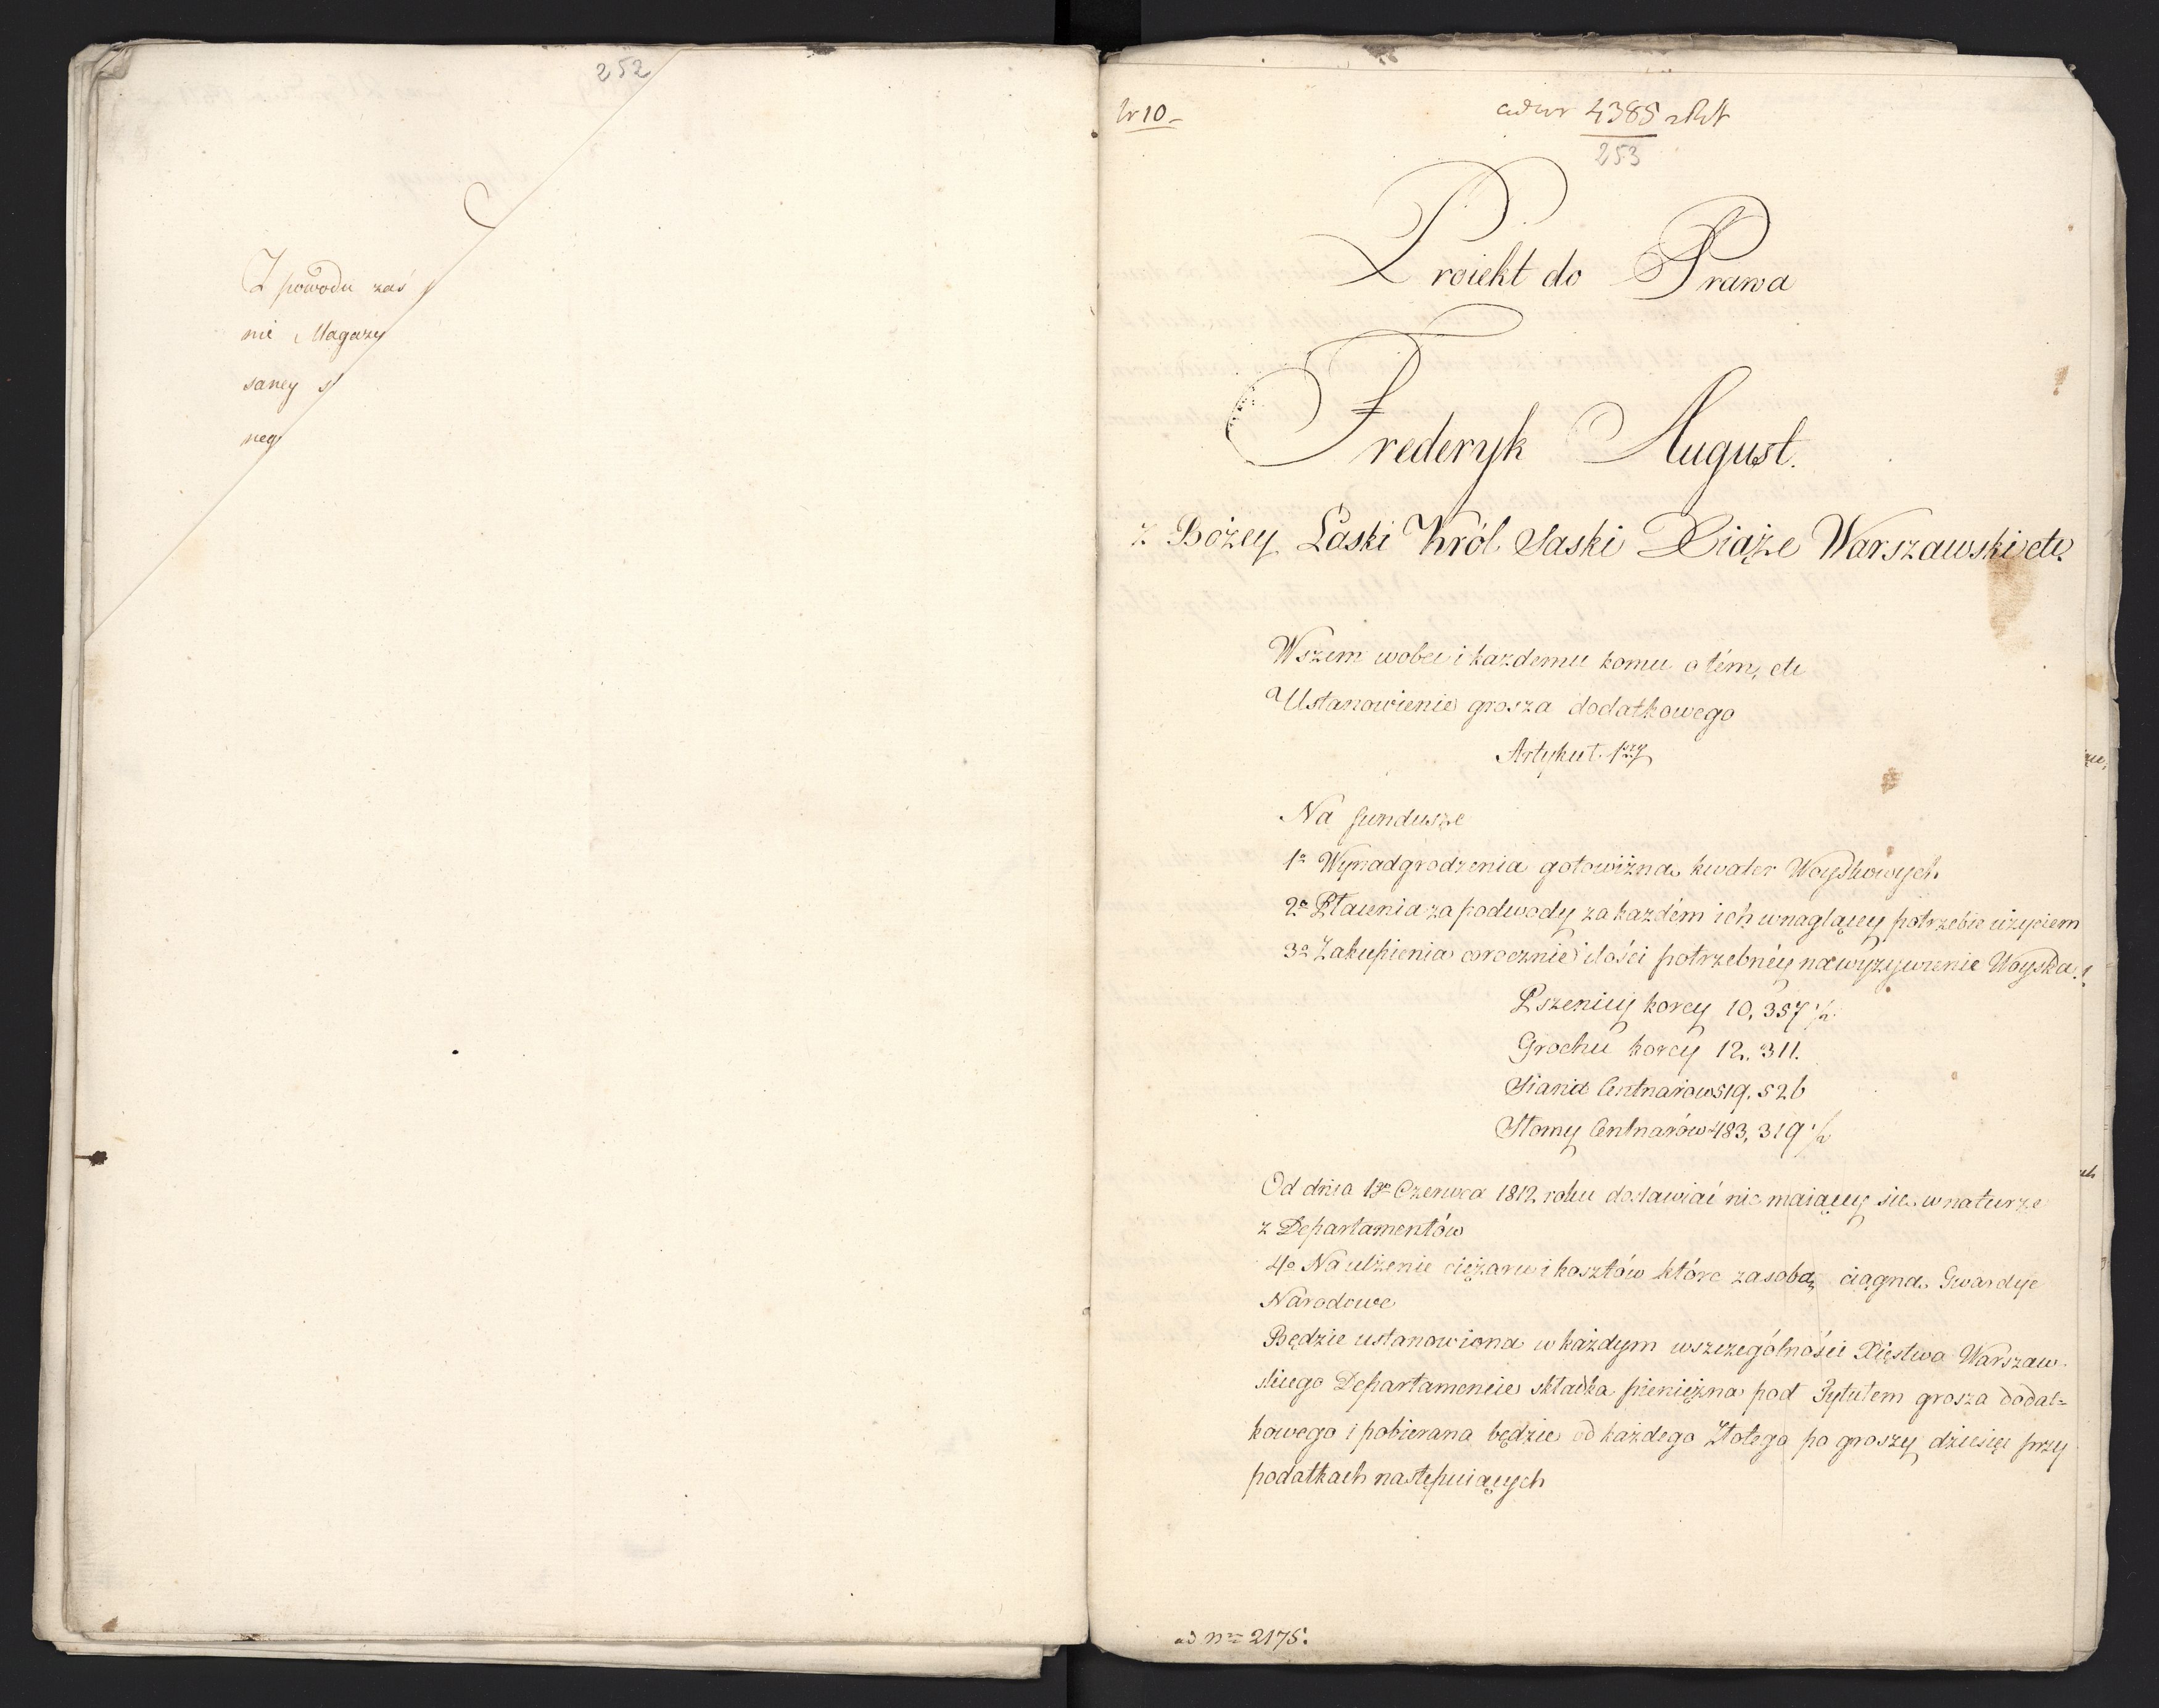 252
Z powodu zaś
nie Magazy
saney s
neg
Nr 10
4385
253
Proiekt do Prawa
Frederyk August.
z Bożey Łaski Król Saski Xiąże Warszawski etc
Wszem wobec i każdemu komu o tém, etc
Ustanowienie grosza dodatkowego
Artykuł 1szy
Na fundusze
1o Wynadgrodzenia gotowizną kwater Woyskowych
2o Płacenia za podwody za każdém ich w naglącey potrzebie użyciem
3o Zakupienia corocznie ilości potrzebnéy na wyżywienie Woyska
Pszenicy korcy 10,357 1/2
Grochu korcy 12,311.
Siana Centnarow 519,526
Słomy Centnarów 483,319 1/2
Od dnia 1go Czerwca 1812 roku dostawiać nie maiącey się w naturze
z Departamentów
4o Na ulżenie ciężaru i kosztów które za sobą ciągną Gwardye
Narodowe
Będzie ustanowiona w każdym wszczególności Xięstwa Warszaw
skiego Departamencie składka pieniężna pod Tytułem grosza dodat=
kowego i pobierana będzie od każdego Złotego po groszy dziesięć przy
podatkach następuiących
ad Nrm 2175.